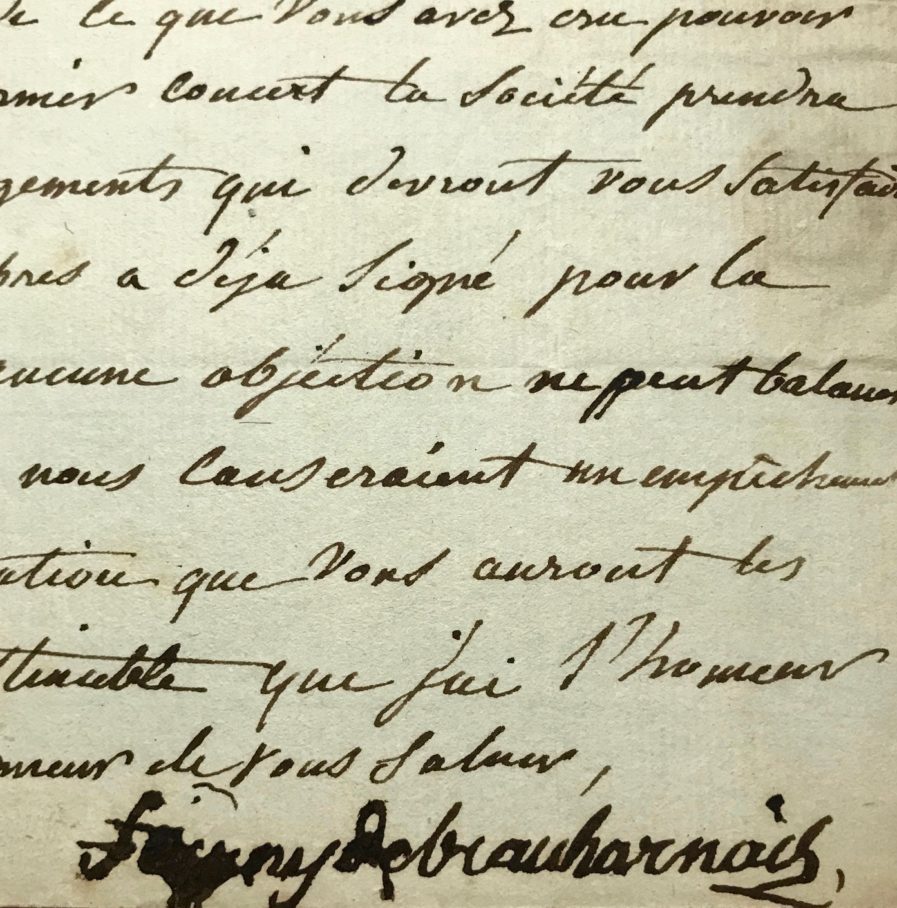 de ce que Vous avez cru pouvoir
rnier concert la Société prendra
gements qui devront vous Satisfair
bres a déja Signé pour la
aucune objéction ne peut balancer
nous Causeraient un empêchement
ation que Vous auront les
timable que j'ai l'honneur
nneur de Vous Saluer,
fanny de beauharnais,